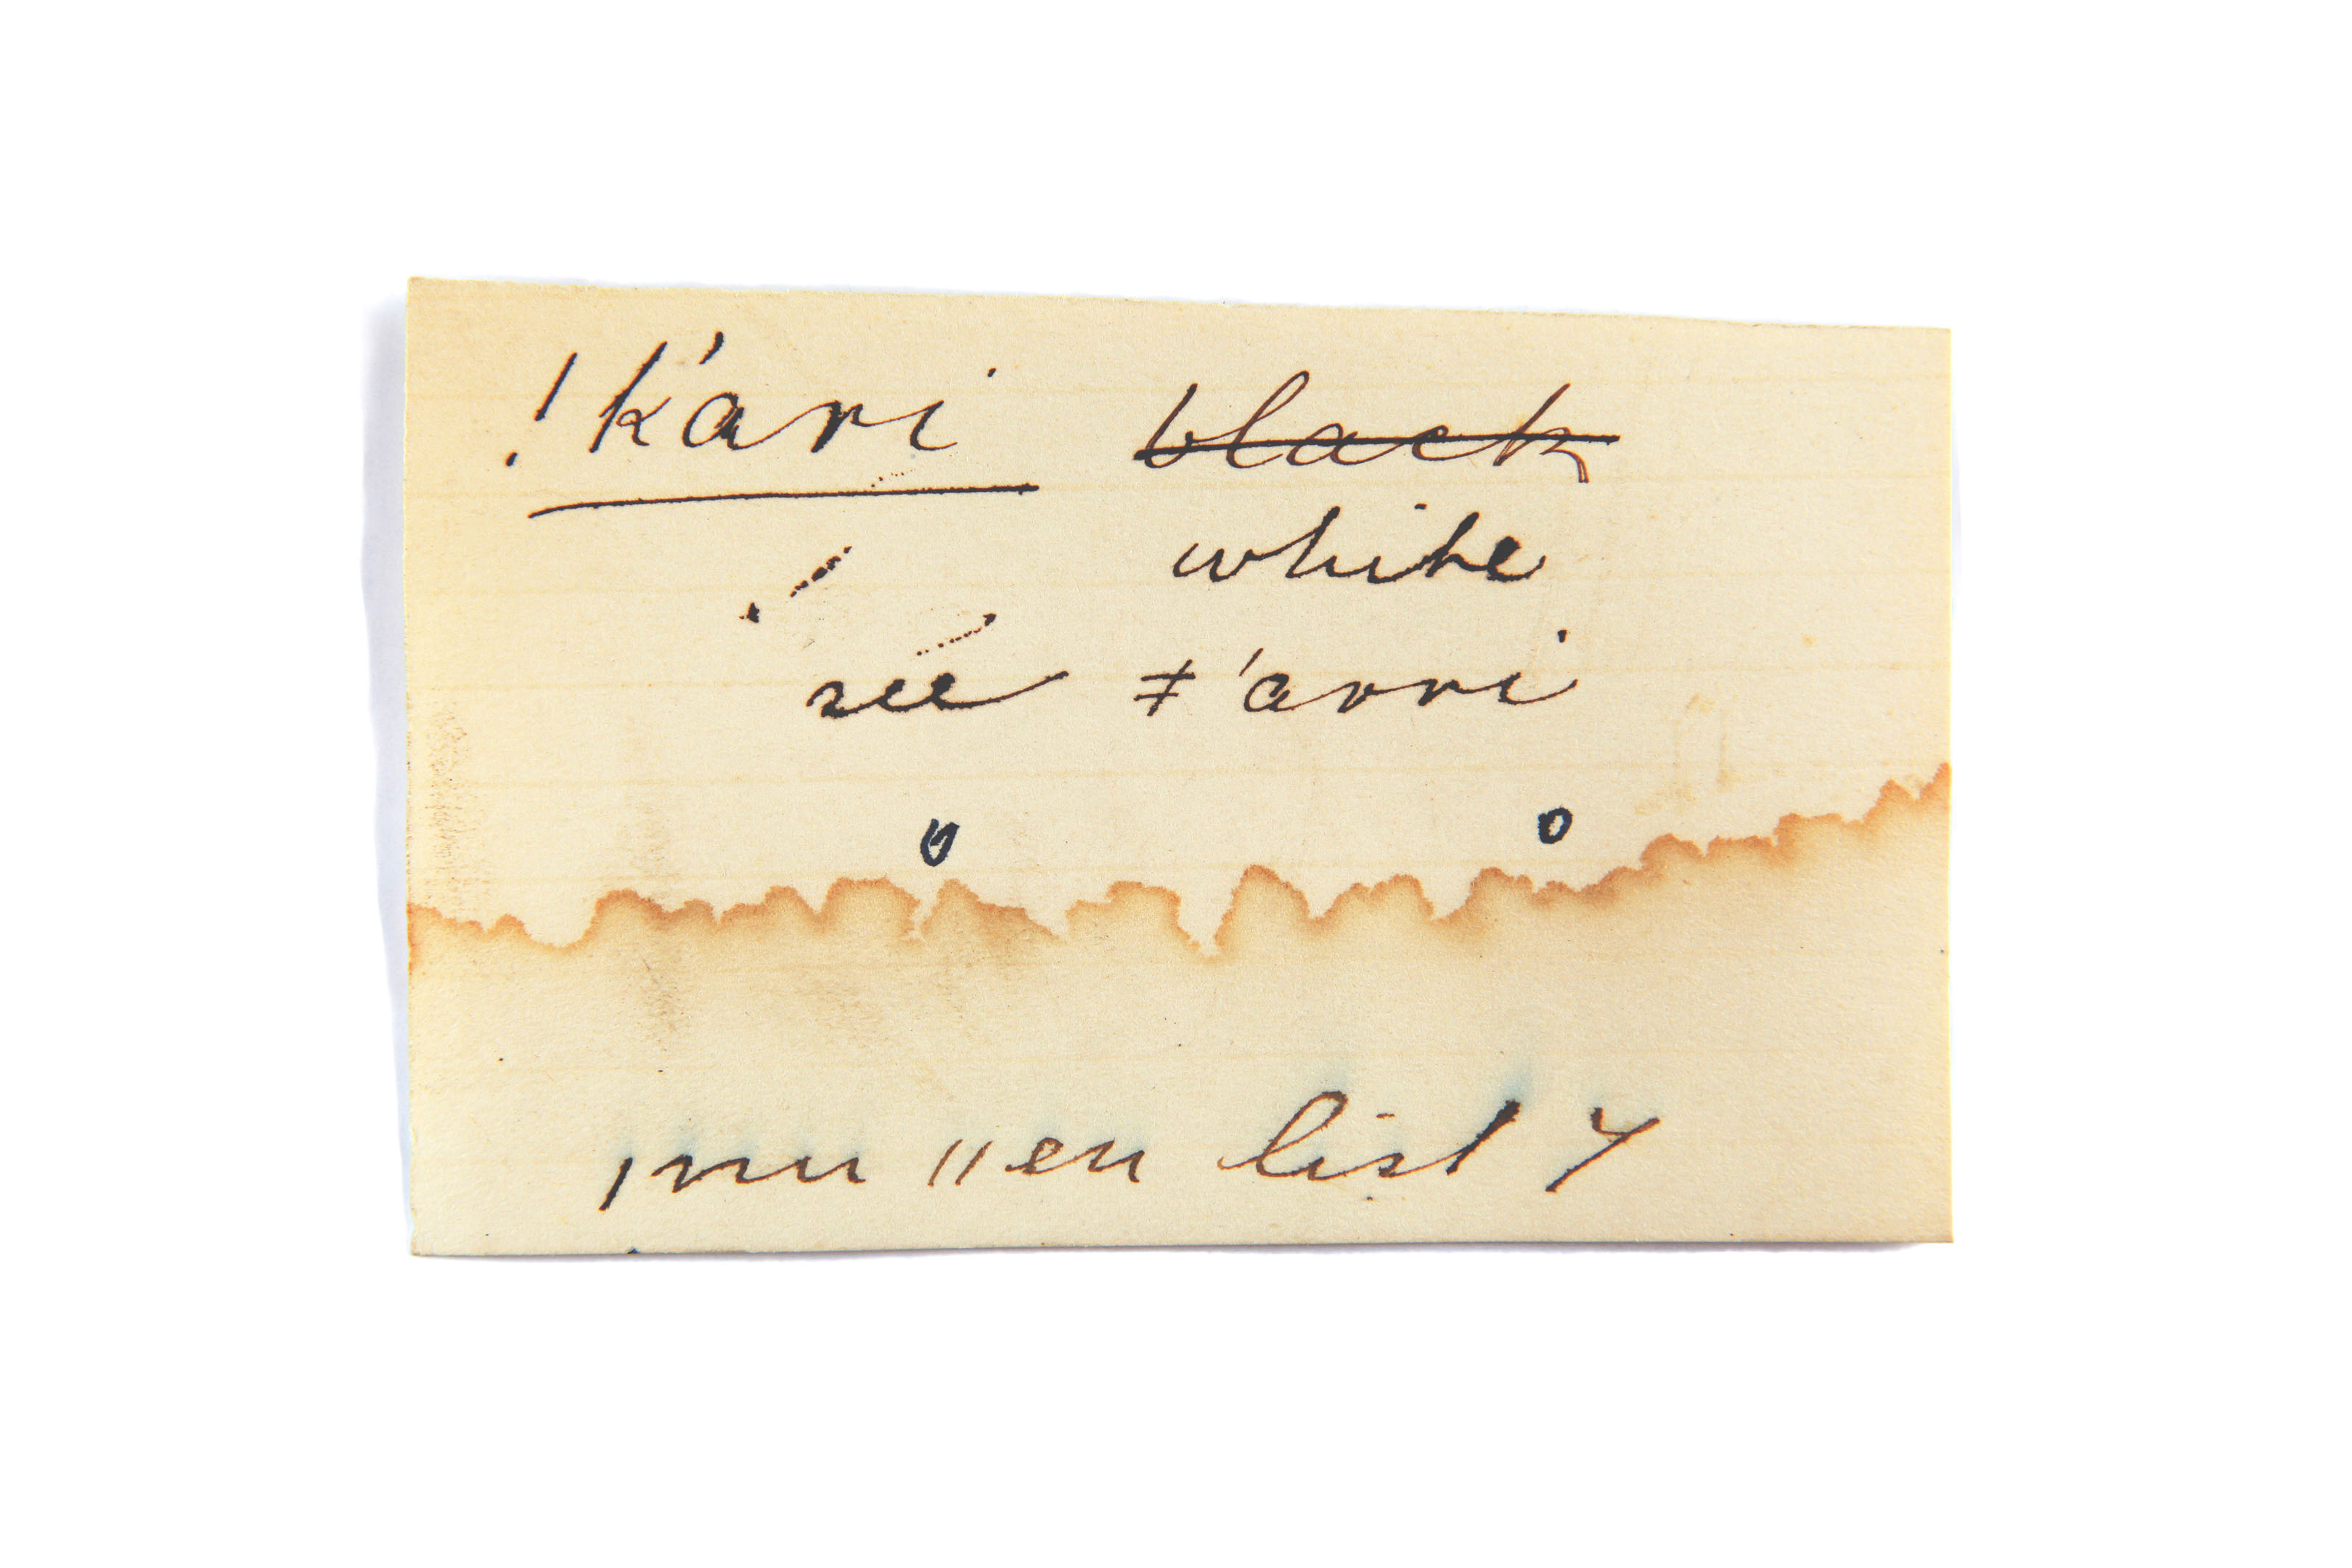 !k'ari black
white
see ǂ'arri
ǀnu ǁen list Y